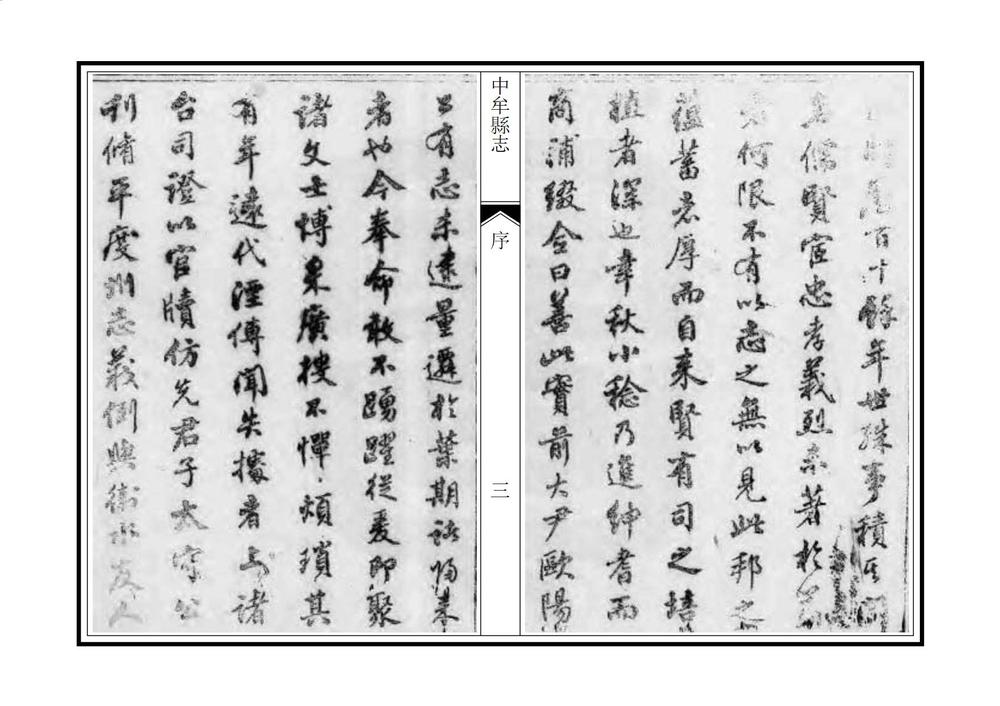 百十餘年世殊事積其間
名儒賢宦忠孝義烈未著於
者何限不有以志之無以見此邦之
蘊蓄者厚而自來賢有司之培
植者深也幸秋小稔乃進紳耆而
商浦綴僉曰善此實前大尹歐陽
公有志未逮量遷於葉期諮歸來
者也今奉命敢不踴躍從爰即聚
諸文士博采廣搜不憚煩瑣其
有年遠代湮傳聞失據者上諸
台司證以官牘仿先君子太守公
刊脩平度州志義例與衛水友人
中牟縣志
序
三